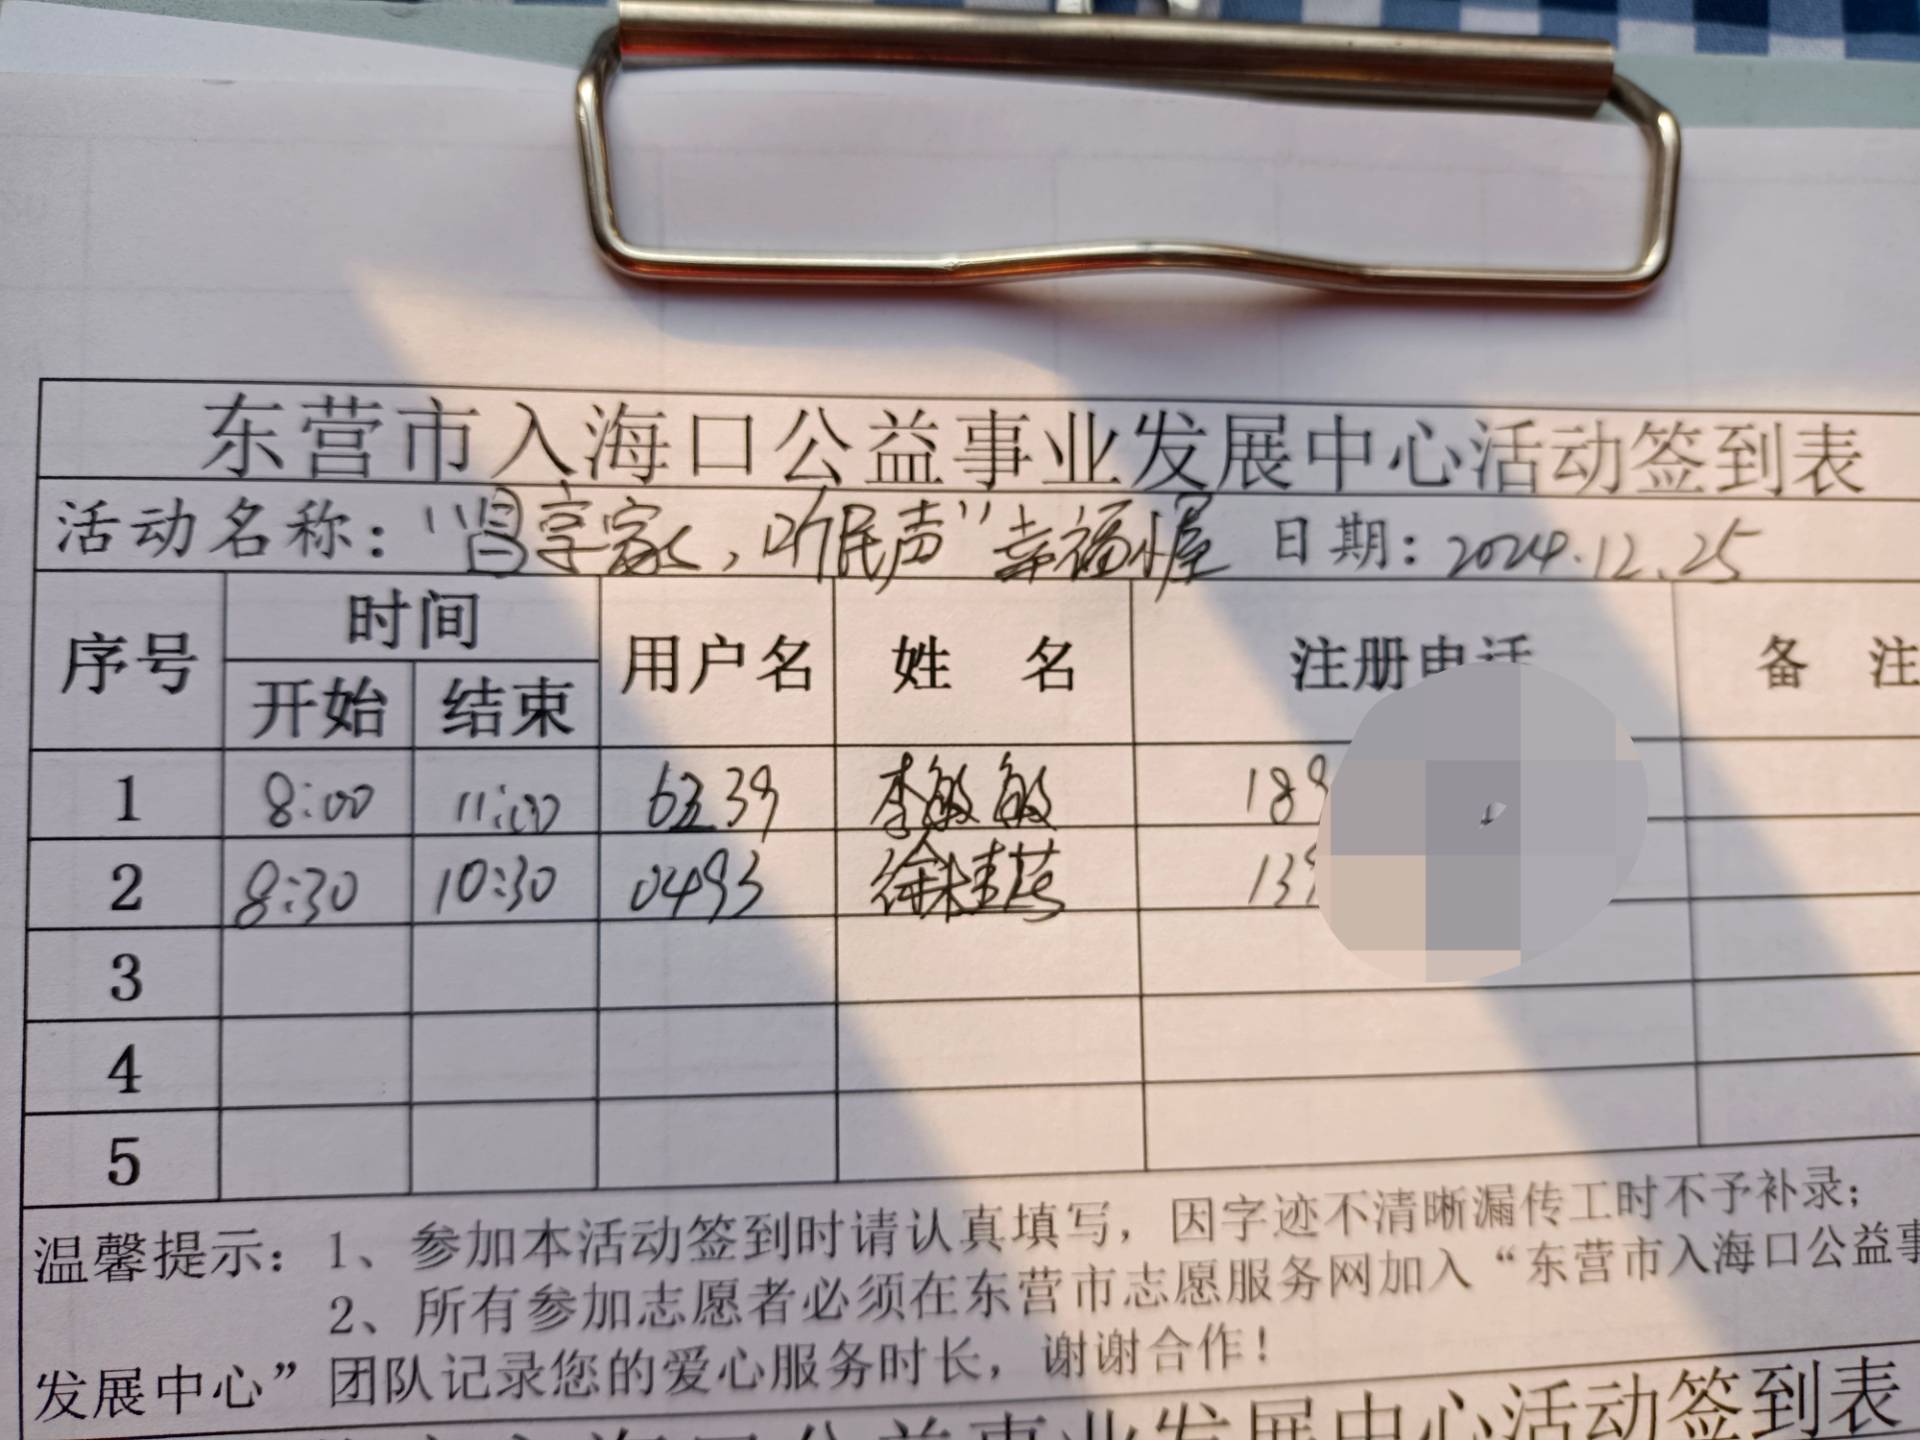 东营市入海口公益事业发展中心活动签到表
活动名称：“昌享家，听民声”幸福小屋 日期：2024.12.25
序号 时间 用户名 姓名 注册电话 备注
开始 结束
1 8:00 11:00 6339 李敏敏 189
2 8:30 10:30 0493 徐桂芸 139
3
4
5
温馨提示：1、参加本活动签到时请认真填写，因字迹不清晰漏传工时不予补录；
2、所有参加志愿者必须在东营市志愿服务网加入“东营市入海口公益事
发展中心”团队记录您的爱心服务时长，谢谢合作！
公益事业发展中心活动签到表